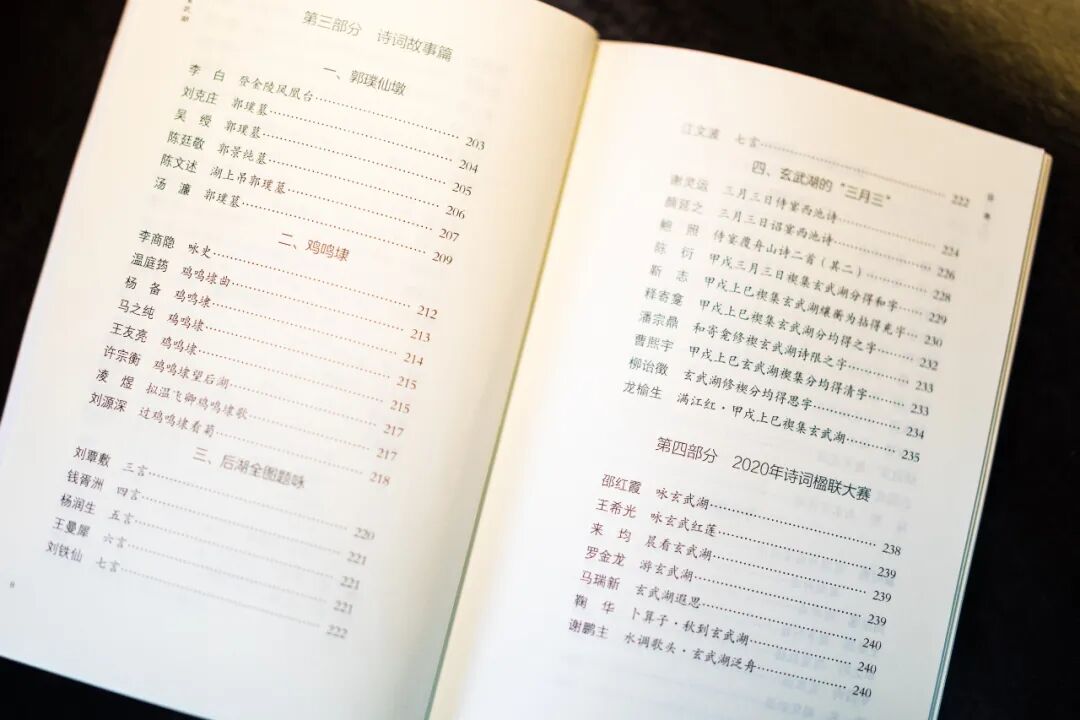 第三部分 诗词故事篇
一、郭璞仙墩
李 白 登金陵凤凰台 203
刘克庄 郭璞墓 204
吴 绶 郭璞墓 205
陈廷敬 郭景纯墓 206
陈文述 湖上吊郭璞墓 207
汤 濂 郭璞墓 209
二、鸡鸣埭
李商隐 咏史 212
温庭筠 鸡鸣埭曲 213
杨 备 鸡鸣埭 214
马之纯 鸡鸣埭 215
王友亮 鸡鸣埭 215
许宗衡 鸡鸣埭望后湖 217
凌 煜 拟温飞卿鸡鸣埭歌 217
刘源深 过鸡鸣埭看菊 218
三、后湖全图题咏
刘覃敷 三言 220
钱胥洲 四言 221
杨润生 五言 221
王曼犀 六言 221
刘铁仙 七言 222
8
江文渡 七言 222
四、玄武湖的“三月三”
谢灵运 三月三日侍宴西池诗 224
颜延之 三月三日诏宴西池诗 226
鲍 照 侍宴覆舟山诗二首（其二） 228
陈 衍 甲戌三月三日禊集玄武湖分得和字 229
靳 志 甲戌上巳禊集玄武湖壤蘅为拈得爽字 230
释寄龛 甲戌上巳禊集玄武湖分均得之字 232
潘宗鼎 和寄龛修禊玄武湖诗限之字 233
曹熙宇 甲戌上巳玄武湖禊集分均得清字 233
柳诒徵 玄武湖修禊分均得思字 234
龙榆生 满江红·甲戌上巳禊集玄武湖 235
第四部分 2020年诗词楹联大赛
邵红霞 咏玄武湖 238
王希光 咏玄武红莲 239
来 均 晨看玄武湖 239
罗金龙 游玄武湖 239
马瑞新 玄武湖遐思 240
鞠 华 卜算子·秋到玄武湖 240
谢鹏主 水调歌头·玄武湖泛舟 240